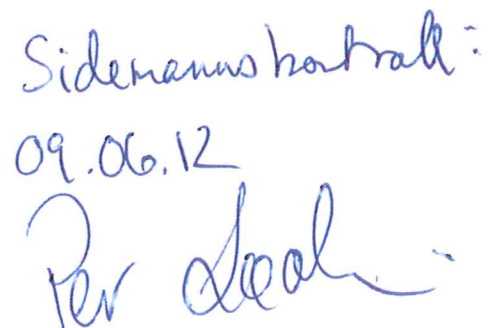 Sidemannskontroll:
09.06.12
Per